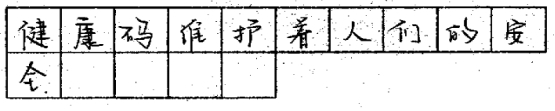 健康码维护着人们的安
全.